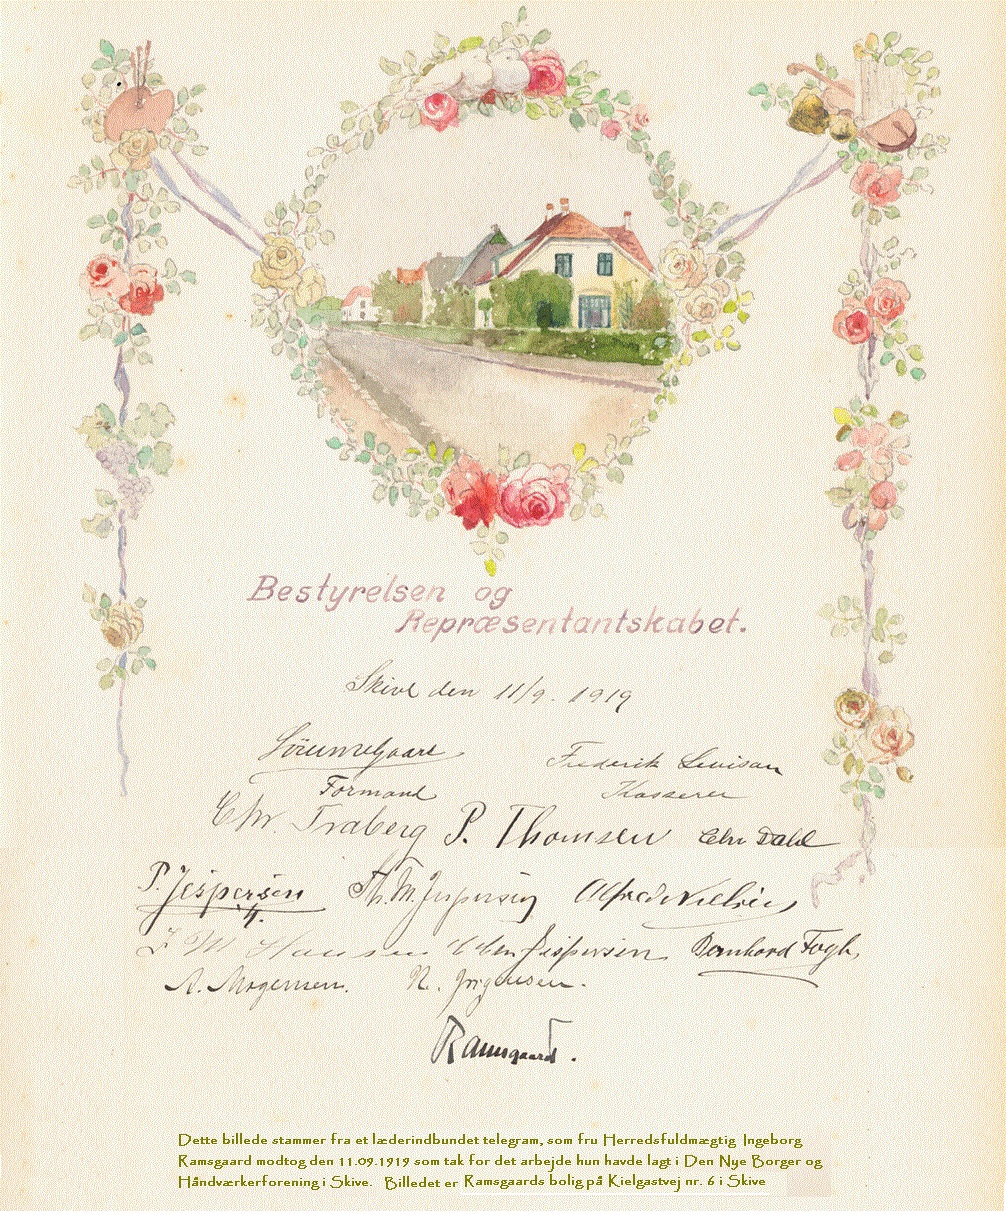 Bestyrelsen og
Repræsentantskabet.
Skive den 11/9. 1919
Frederik Levisan
Formand Kasserer
Chr. Traberg P. Thomsen Chr Dahl
P. Jespersen Th. M. Jespersen Alfred Nielsen
I M Hansen Jespersen Bernhard Fogh,
A. Mogensen. N. Jørgensen.
Ramsgaard.
Dette billede stammer fra et læderindbundet telegram, som fru Herredsfuldmægtig Ingeborg
Ramsgaard modtog den 11.09.1919 som tak for det arbejde hun havde lagt i Den Nye Borger og
Håndværkerforening i Skive. Billedet er Ramsgaards bolig på Kielgastvej nr. 6 i Skive